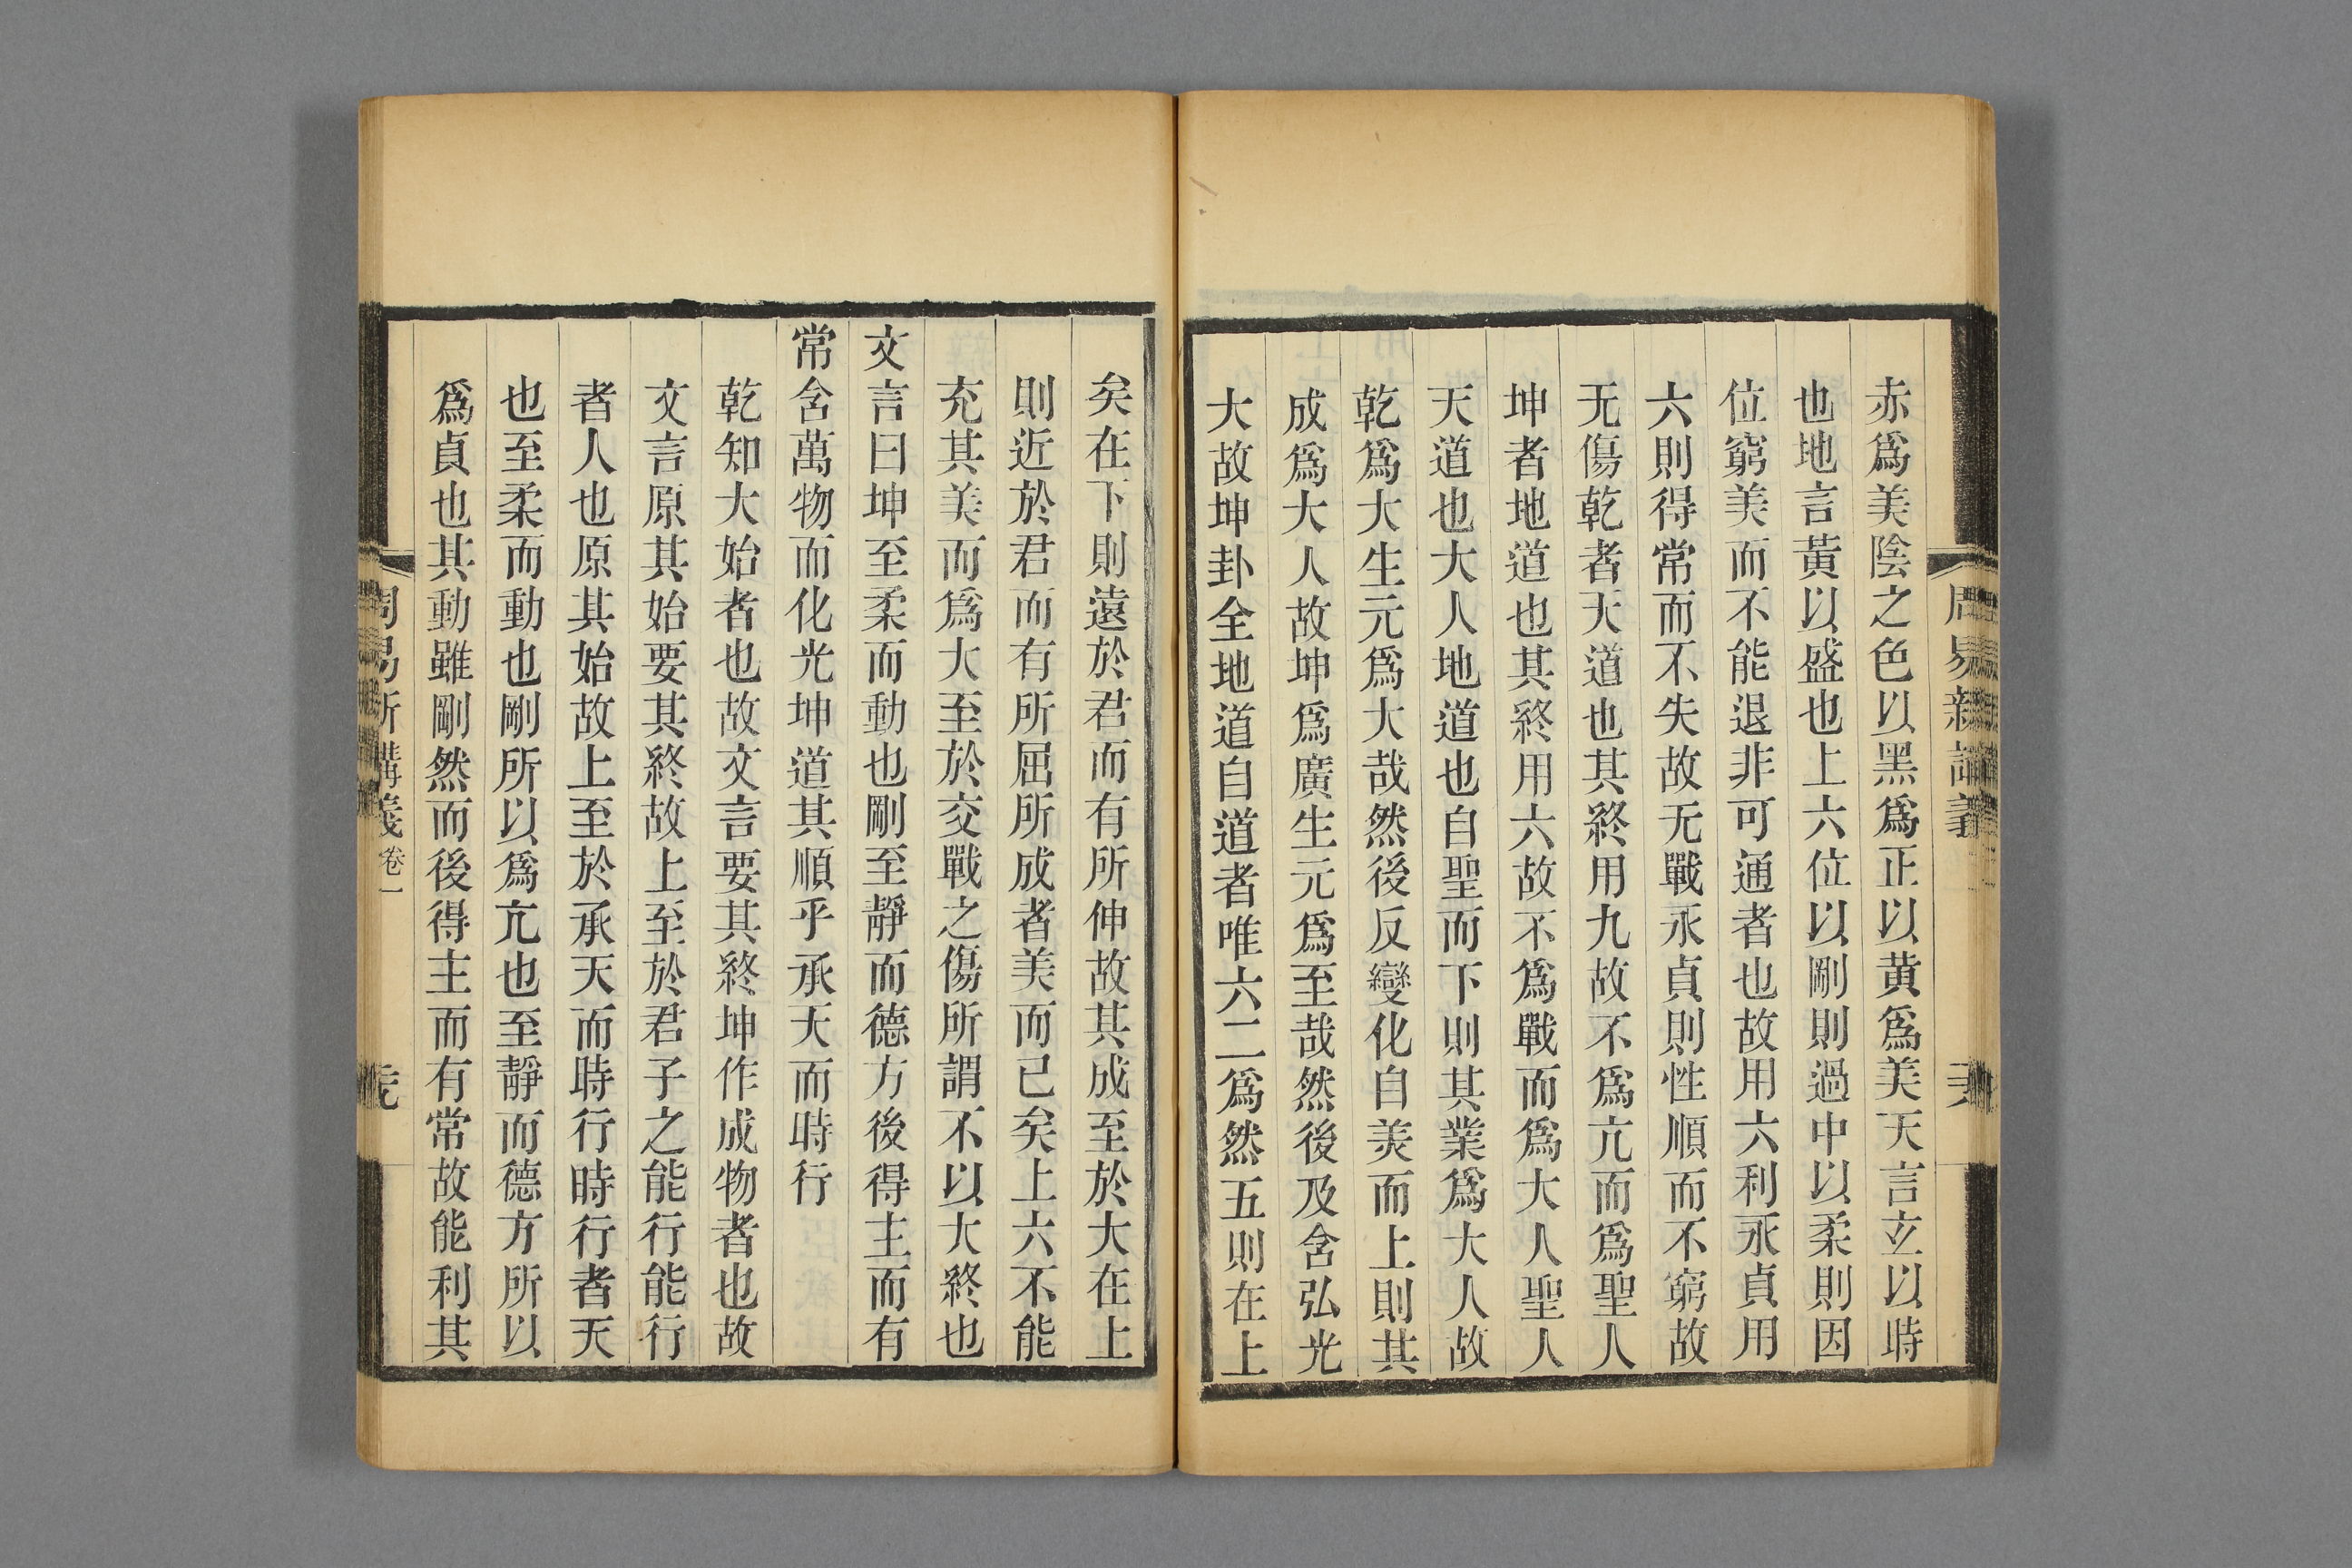 赤爲美陰之色以黑爲正以黄爲美天言玄以時
也地言黃以盛也上六位以剛則過中以柔則因
位窮美而不能退非可通者也故用六利永貞用
六則得常而不失故无戰永貞則性順而不窮故
无傷乾者天道也其終用九故不爲亢而爲聖人
坤者地道也其終用六故不爲戰而爲大人聖人
天道也大人地道也自聖而下則其業爲大人故
乾爲大生元爲大哉然後反變化自美而上則其
成爲大人故坤爲廣生元爲至哉然後及含弘光
大故坤卦全地道自道者唯六二爲然五則在上
矣在下則遠於君而有所伸故其成至於大在上
則近於君而有所屈所成者美而已矣上六不能
充其美而爲大至於交戰之傷所謂不以大終也
文言曰坤至柔而動也剛至靜而德方後得主而有
常含萬物而化光坤道其順乎承天而時行
乾知大始者也故文言要其終坤作成物者也故
文言原其始要其終故上至於君子之能行能行
者人也原其始故上至於承天而時行時行者天
也至柔而動也剛所以爲亢也至靜而德方所以
爲貞也其動雖剛然而後得主而有常故能利其
周易新講義卷一